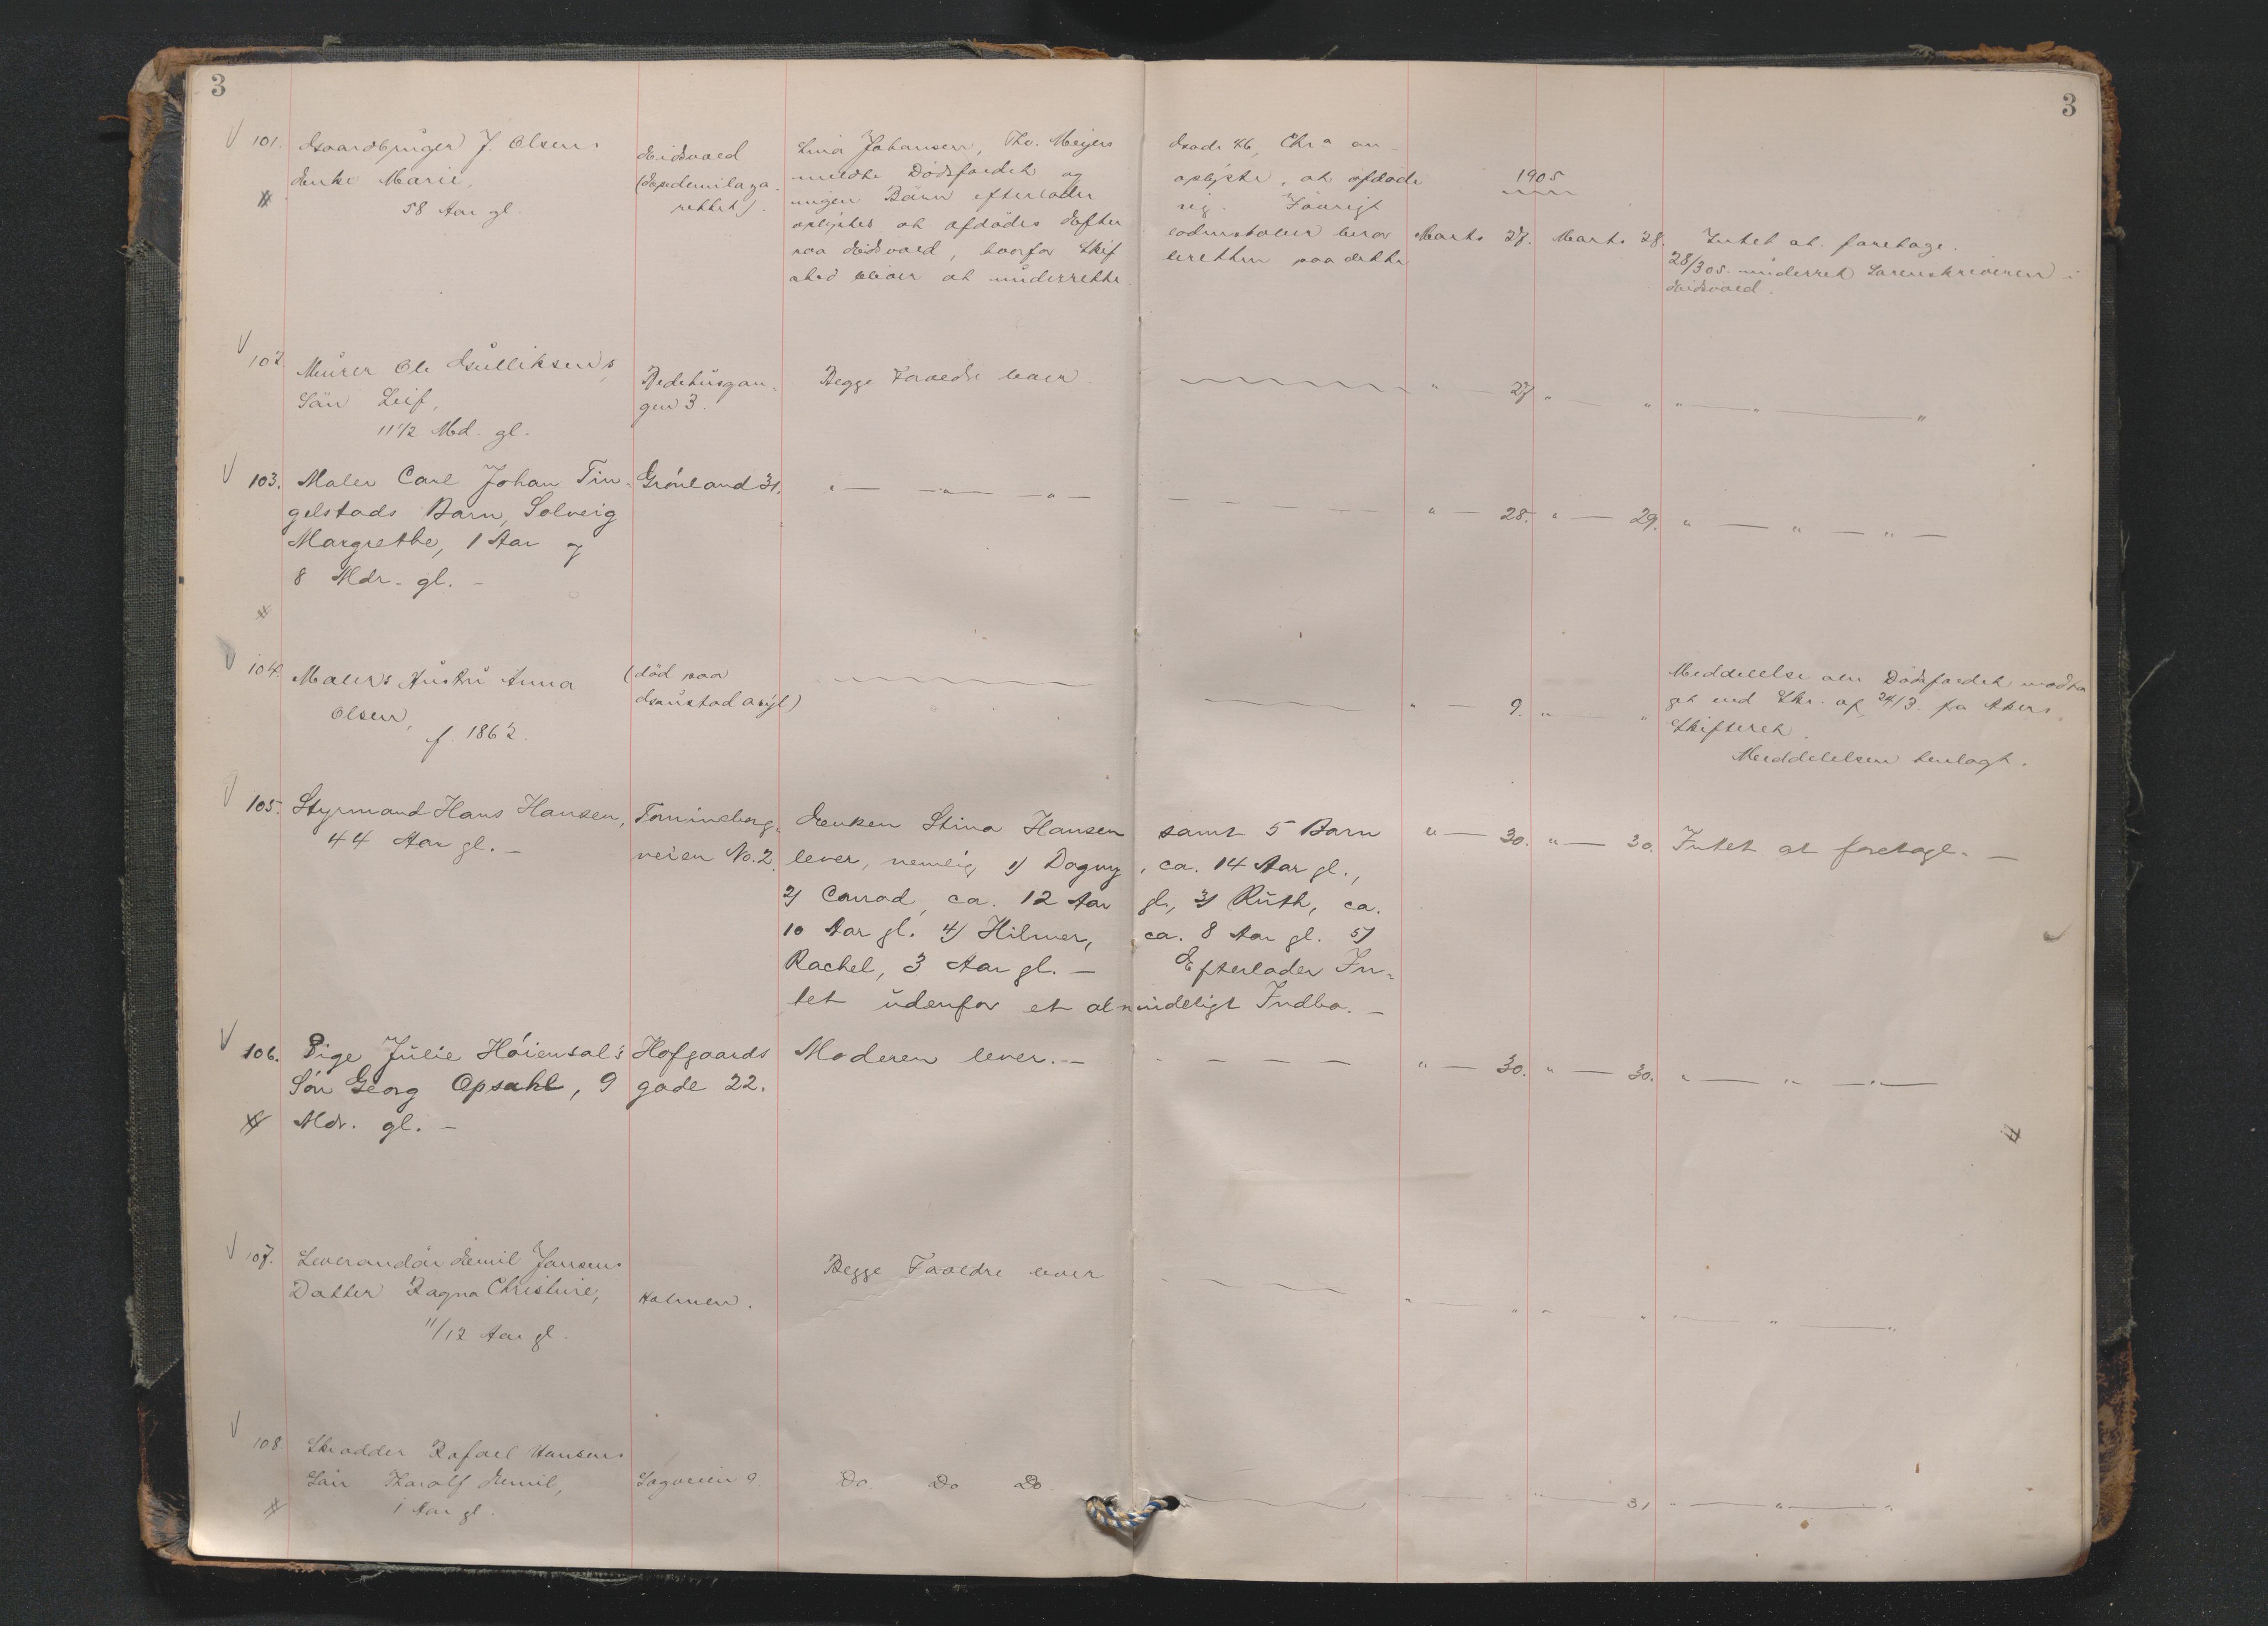 3
3
101. Gaardbruger J. Olsens
Enke Marie,
58 Aar gl.
Eidsvold
(Epidemilaza-
rettet).
Lina Johansen, Thv. Meyers Gade 46, Chra an-
meldte Dödsfaldet og oplyste, at afdöde
ingen Börn efterlader sig. Forövrigt
oplystes at afdödes Efterladenskaber beror
paa Eidsvold, hvorfor Skifteretten paa dette
Sted bliver at underrette.
1905
Marts 27. Marts 28.
Intet at foretage.
28/3 05. underret Sorenskriveren i
Eidsvold.
102. Murer Ole Gulliksens
Sön Leif,
11 1/2 Md. gl.
Bedehusgan-
gen 3.
Begge Forældre lever.
" — 27 " — " " — " — "
103. Maler Carl Johan Tin-
gelstads Barn, Solveig
Margrethe, 1 Aar og
8 Mdr. gl. —
Grönland 31.
" — " — " —
" — 28. " — 29. " — " — " —
104. Malers Hustru Anna
Olsen,
f. 1862.
(död paa
Gaustad asyl)
" — 9. " — "
Meddelelse om Dödsfaldet modta-
get ved Skr. af 24/3. fra Akers
Skifteret.
Meddelelsen henlagt.
105. Styrmand Hans Hansen,
44 Aar gl. —
Tomineborg-
veien No. 2.
Enken Stina Hansen samt 5 Barn
lever, nemlig 1) Dagny, ca. 14 Aar gl.,
2) Conrad, ca. 12 Aar gl., 3) Ruth, ca.
10 Aar gl. 4) Hilmer, ca. 8 Aar gl. 5)
Rachel, 3 Aar gl. — Efterlader In-
tet udenfor et almindeligt Indbo. —
" — 30. " — 30. Intet at foretage. —
106. Pige Julie Höiensal's
Sön Georg Opsahl, 9
Mdr. gl. —
Hofgaards
gade 22.
Moderen lever. —
" — 30. " — 30. " — " — " —
107. Leverandör Emil Jansens
Datter Ragna Christine,
11/12 Aar gl.
Holmen.
Begge Forældre lever
" — " " — " " — " — "
108. Skrædder Rafael Hansens
Sön Harolf Emil,
1 Aar gl.
Sagveien 9.
Do. Do Do
— " " — 31 " — " — "